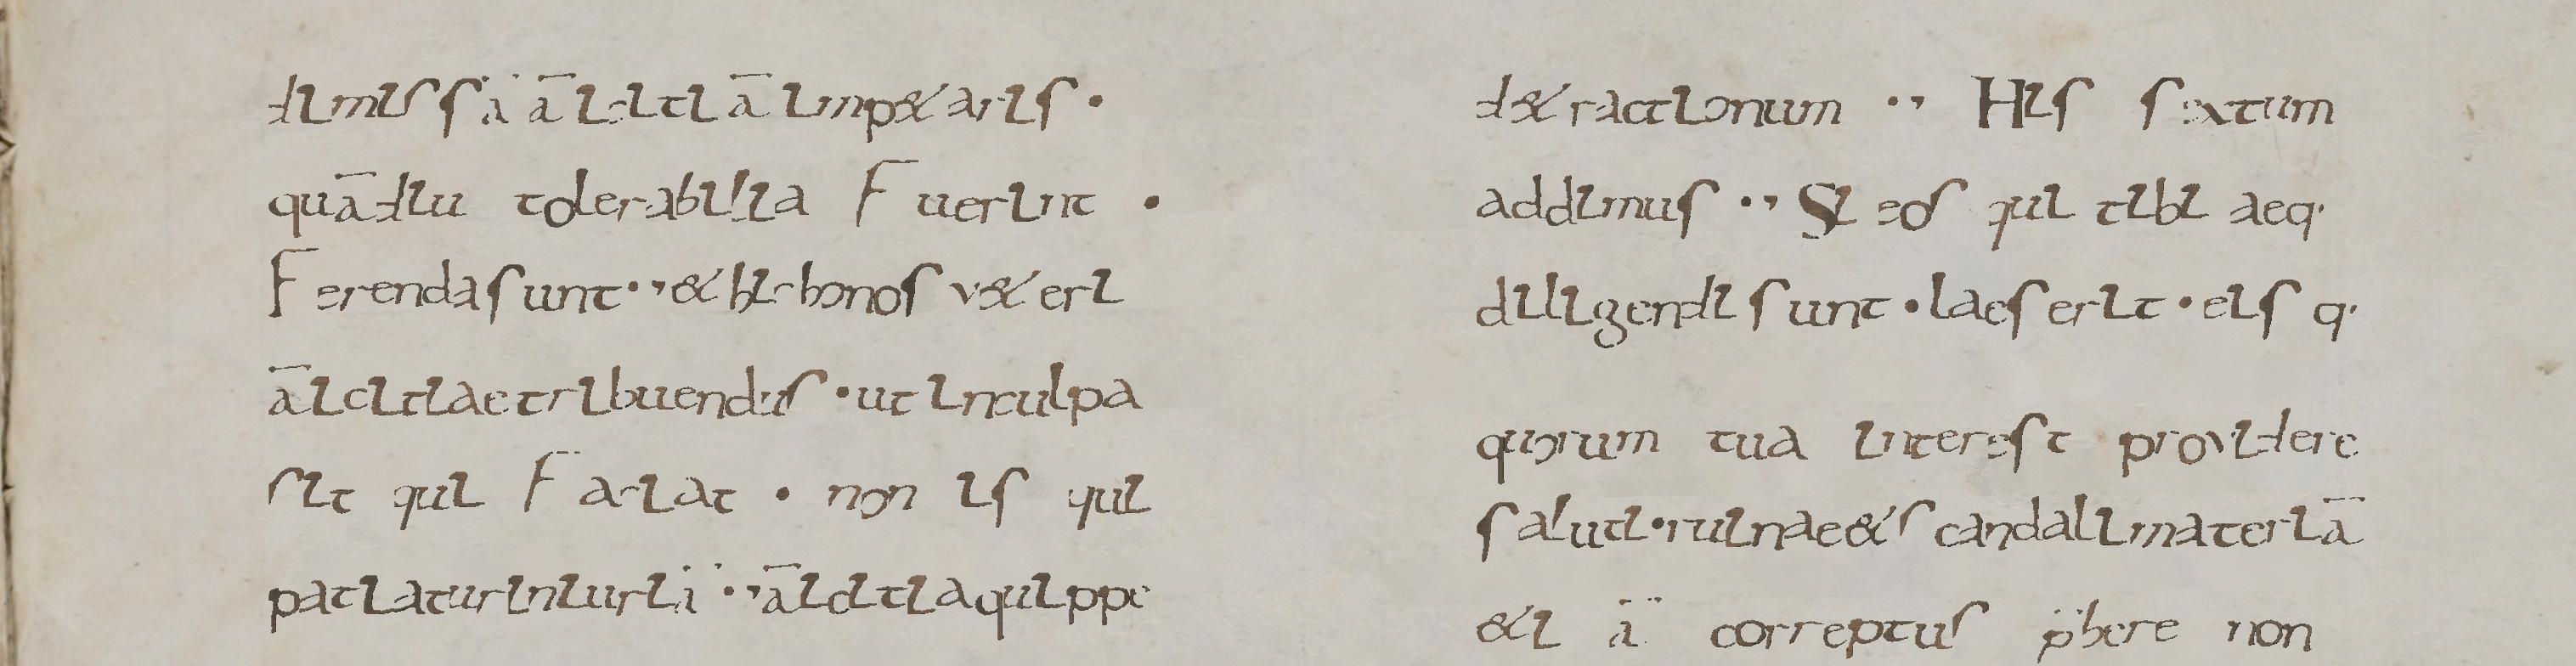 dimissā āicitiā inp&aris ·
quādiu tolerabilia Fuerint ·
Ferenda sunt ·, & hic honos v&eri
āicitiae tribuendus · ut in culpa
sit qui Faciat · non is qui
patiatur iniuriā ·, āicitia quippe
d&ractionum ·, His sextum
addimus ·, Si eos qui tibi aeq·
diligendi sunt · laeserit · eis q·
quorum tua interest providere
saluti · ruinae & scandali materiā
&i ā correptus p̄bere non